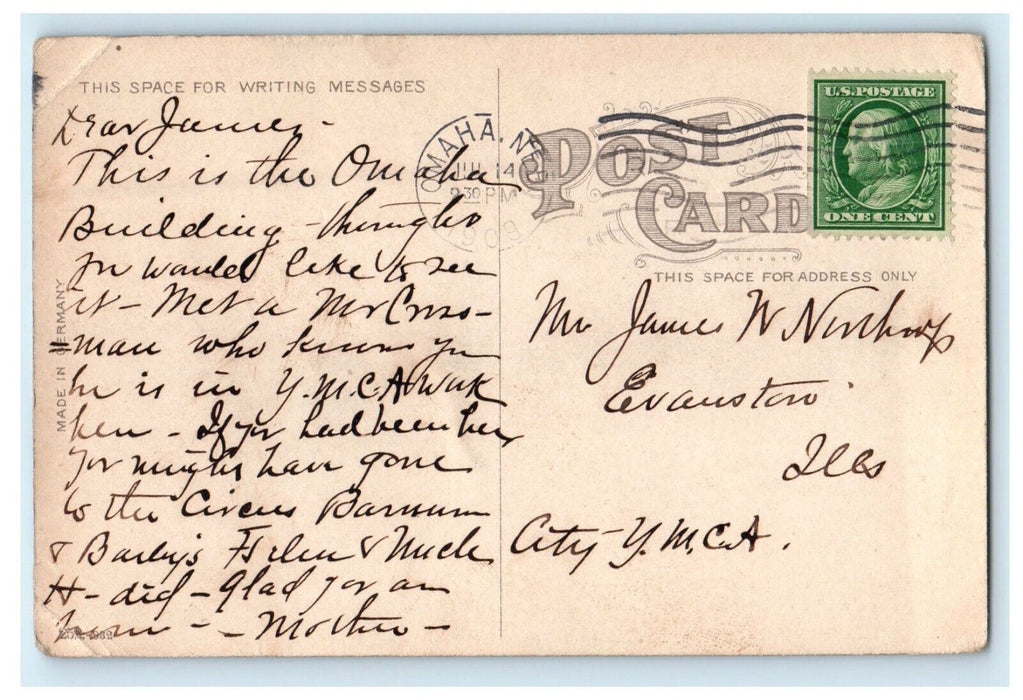 THIS SPACE FOR WRITING MESSAGES
Dear James-
This is the Omaha
Building - thought
you would like to see
it - Met a Mr Cross-
=man who knows you
he is in Y.M.C.A work
here - If you had been here
you might have gone
to the Circus Barnum
& Baily's Helen & Uncle
H - did - Glad you are
home - - Mother -
MADE IN GERMANY
OMAHA, NEB
JUL 14
2 30 PM
1909
POST
CARD
U.S. POSTAGE
ONE CENT
THIS SPACE FOR ADDRESS ONLY
Mr James W Northrop
Evanston
Ills
City Y.M.C.A.